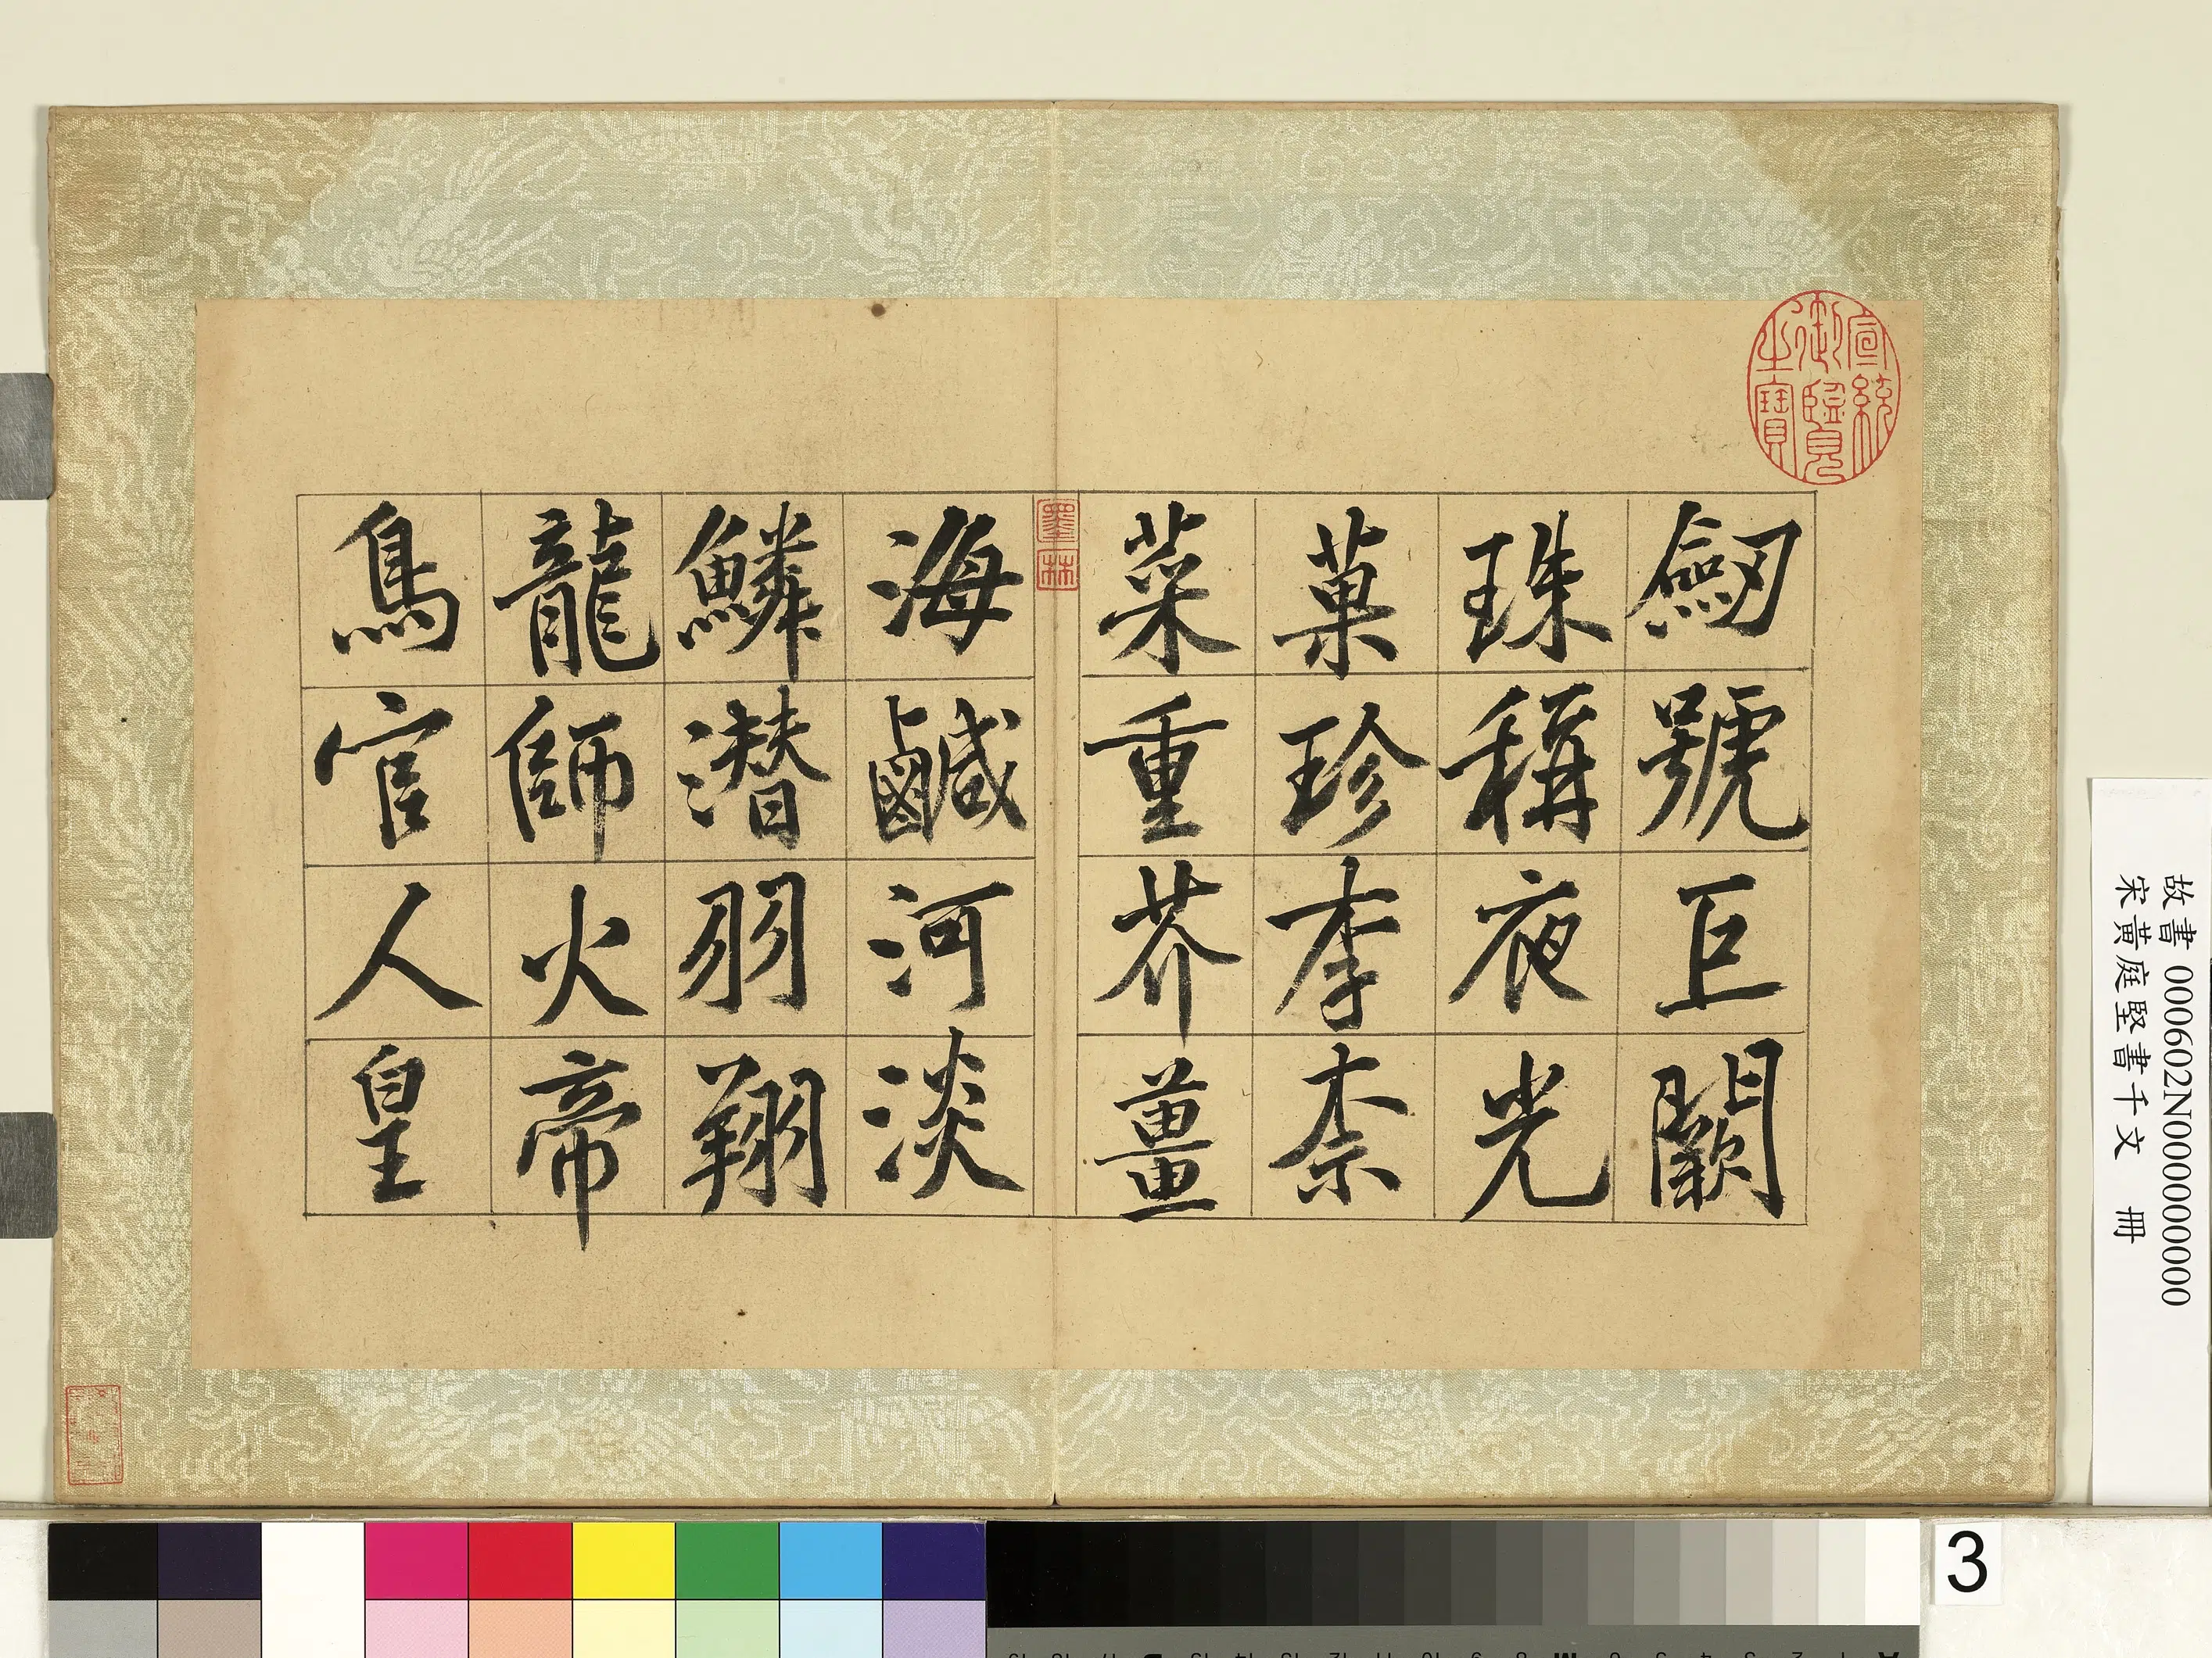 劒號巨闕
珠稱夜光
菓珍李柰
菜重芥薑
海鹹河淡
鱗潛羽翔
龍師火帝
鳥官人皇
宣統御覽之寶
墨林
故書 000602N000000000
宋黃庭堅書千文 冊
3